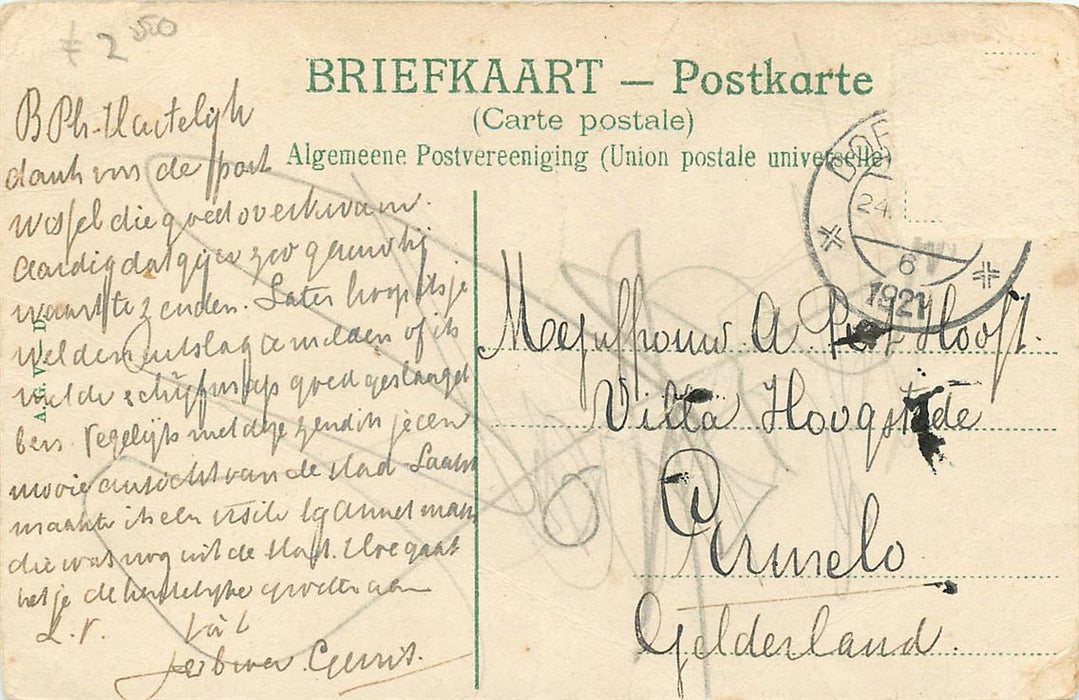 2 50
BRIEFKAART — Postkarte
(Carte postale)
Algemeene Postvereeniging (Union postale universelle)
24
6
1921
Mejuffrouw A. Hooft.
Villa Hoogstede
Ermelo
Gelderland.
B Ph. Hartelijk
dank voor de post
wissel die goed overkwam.
Aardig dat gij er zoo gauw bij
waart te zenden. Later hoop ik je
welden uitslag te melden of ik
wel de schijf goed geslaagd
ben. Tegelijk met deze zend ik je een
mooie ansicht van de stad. Laatst
maakte ik een
die wat nog uit de stad. Hoe gaat
het je de hartelijke groeten aan
Gerrit.